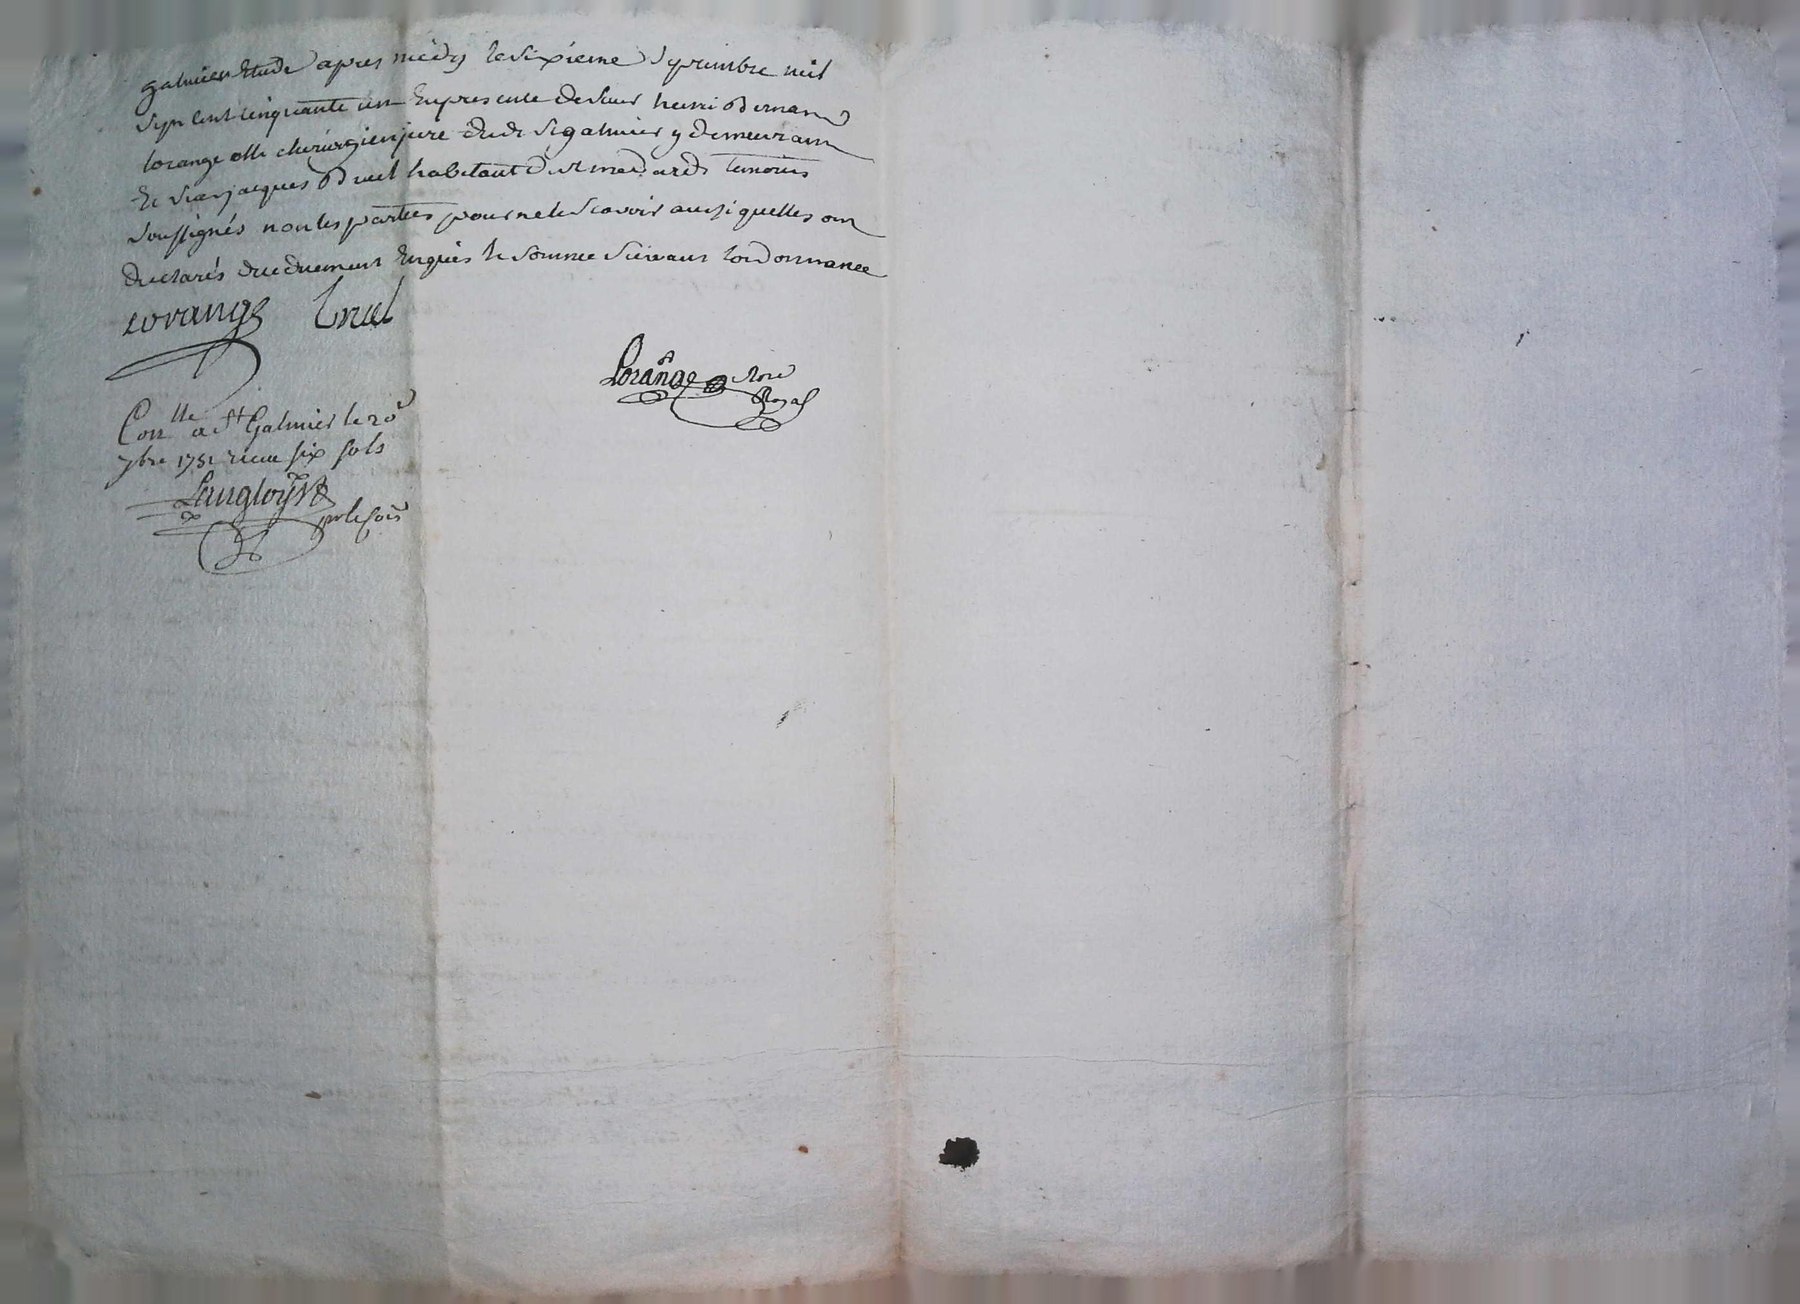 galmier Etude apres midy le sixieme Septembre mil
sept cent cinquante un En presence de sieur henri Bernard
lorange Me chirurgien juré dud. St galmier y demeurant
Et Jean jacques Bruel habitant de St medard temoins
soussignés non les parties pour ne le scavoir ainsi quelles ont
declarés de ce duement Enquis Et sommées suivant lordonnance
Lorange Bruel
Lorange Nore
Royal
Con lle a St Galmier le 20
7bre 1751 recu six sols
Langloys
pr le Cois